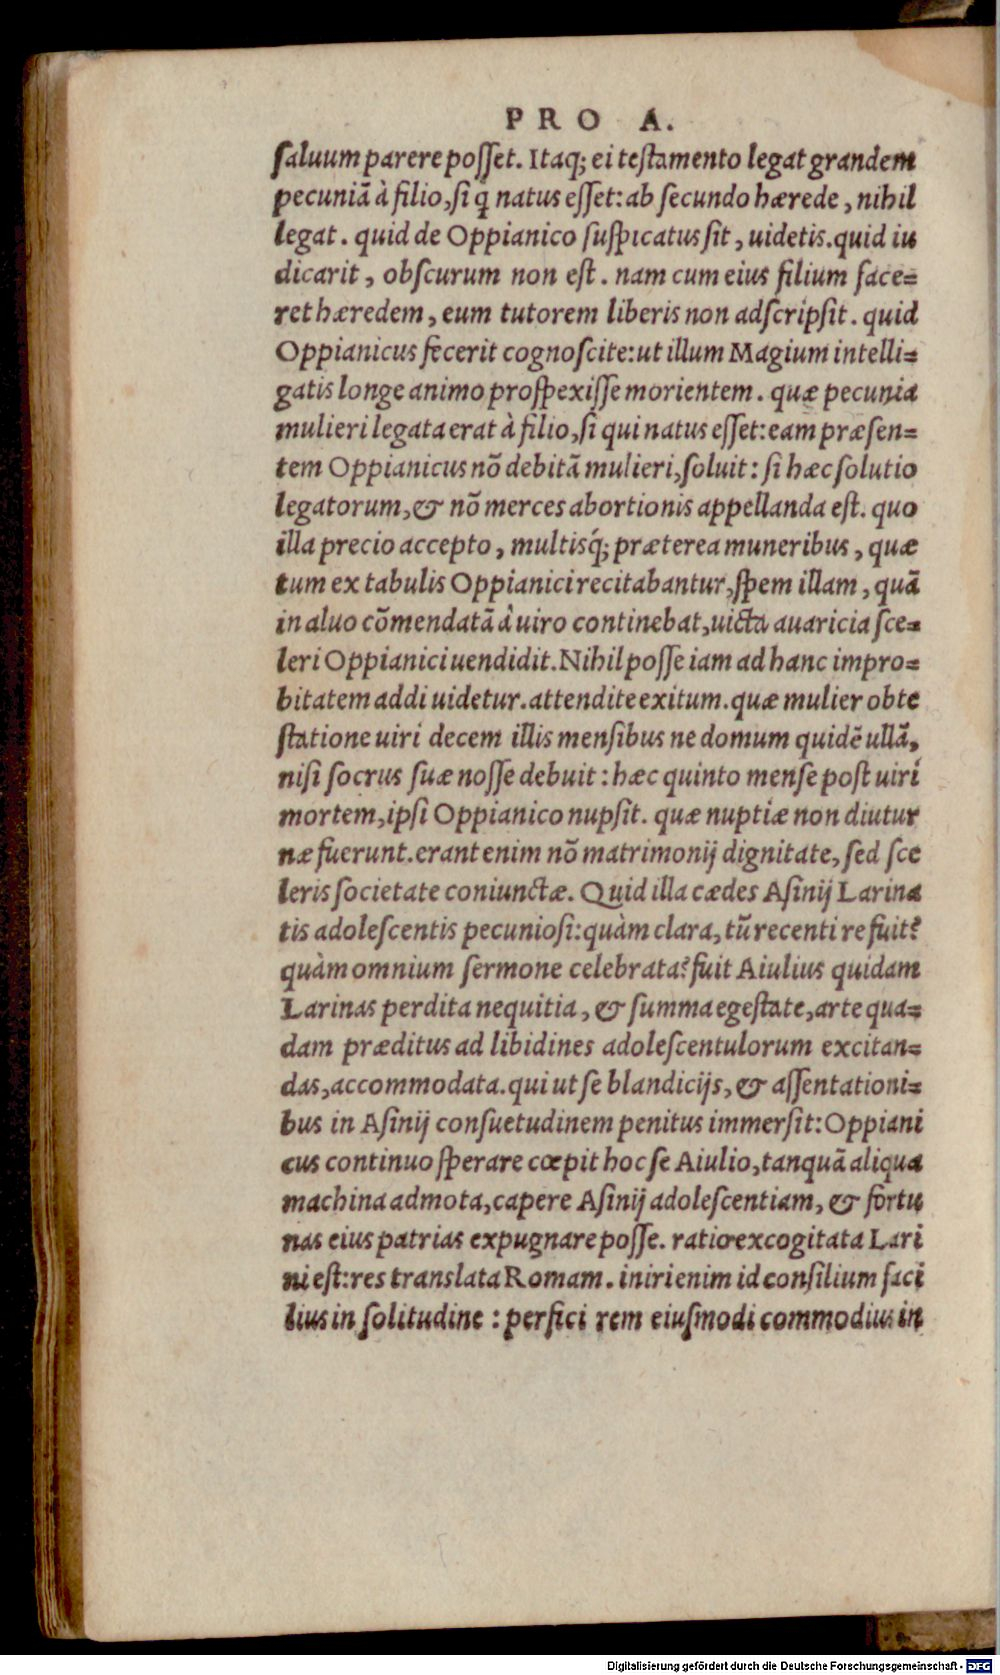 PRO A.
ſaluum parere poſſet. Itaq; ei teſtamento legat grandem
pecuniā à filio, ſi q́ natus eſſet: ab ſecundo hærede, nihil
legat. quid de Oppianico ſuſpicatus ſit, uidetis. quid iu
dicarit, obſcurum non eſt. nam cum eius filium face=
ret hæredem, eum tutorem liberis non adſcripſit. quid
Oppianicus fecerit cognoſcite: ut illum Magium intelli=
gatis longe animo proſpexiſſe morientem. quæ pecunia
mulieri legata erat à filio, ſi qui natus eſſet: eam præſen=
tem Oppianicus nō debitā mulieri, ſoluit: ſi hæc ſolutio
legatorum, & nō merces abortionis appellanda eſt. quo
illa precio accepto, multisq́; præterea muneribus, quæ
tum ex tabulis Oppianici recitabantur, ſpem illam, quā
in aluo cōmendatā à uiro continebat, uicta auaricia ſce=
leri Oppianici uendidit. Nihil poſſe iam ad hanc impro=
bitatem addi uidetur. attendite exitum. quæ mulier obte
ſtatione uiri decem illis menſibus ne domum quidē ullā,
niſi ſocrus ſuæ noſſe debuit: hæc quinto menſe poſt uiri
mortem, ipſi Oppianico nupſit. quæ nuptiæ non diutur
næ fuerunt. erant enim nō matrimonij dignitate, ſed ſce
leris ſocietate coniunctæ. Quid illa cædes Aſinij Larina
tis adoleſcentis pecunioſi: quàm clara, tū recenti re fuit?
quàm omnium ſermone celebrata? fuit Aiulius quidam
Larinas perdita nequitia, & ſumma egeſtate, arte qua=
dam præditus ad libidines adoleſcentulorum excitan=
das, accommodata. qui ut ſe blandicijs, & aſſentationi=
bus in Aſinij conſuetudinem penitus immerſit: Oppiani
cus continuo ſperare cœpit hoc ſe Aiulio, tanquā aliqua
machina admota, capere Aſinij adoleſcentiam, & fortu
nas eius patrias expugnare poſſe. ratio excogitata Lari
ni eſt: res translata Romam. iniri enim id conſilium faci
lius in ſolitudine: perfici rem eiuſmodi commodius in
Digitalisierung gefördert durch die Deutsche Forschungsgemeinschaft - DFG